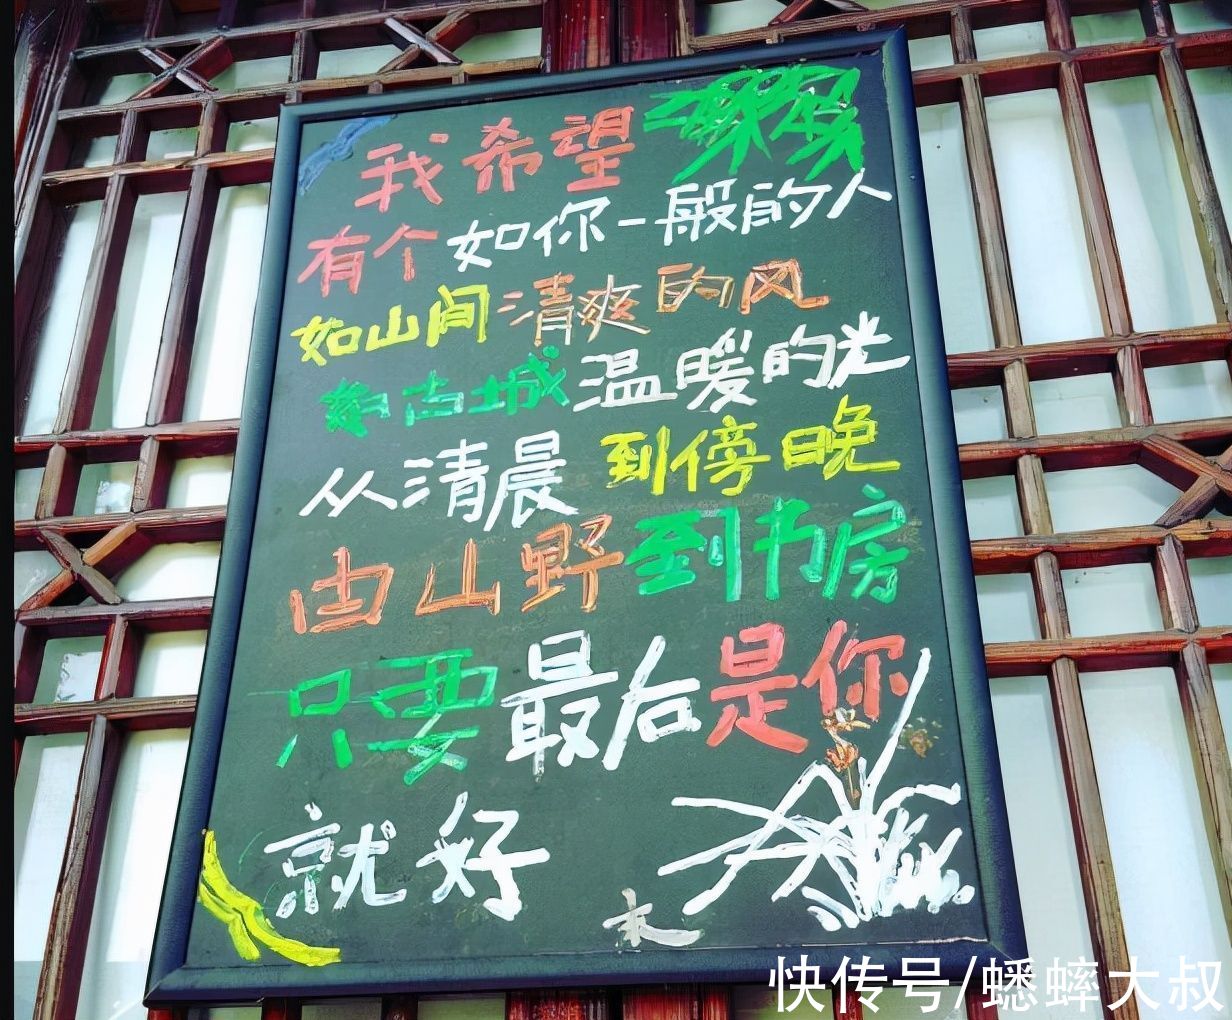 我希望
有个如你一般的人
如山间清爽的风
如古城温暖的光
从清晨到傍晚
由山野到书房
只要最后是你
就好
木
快传号/蟋蟀大叔